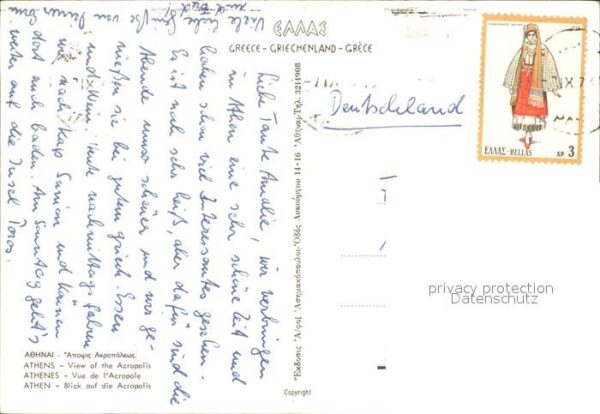 ΕΛΛΑΣ
GREECE - GRIECHENLAND - GRÈCE
Liebe Tante Amalie, wir verbringen
in Athen eine sehr schöne Zeit und
haben schon viel Interessantes gesehen.
Es ist noch sehr heiß, aber dafür sind die
Abende umso schöner und wir ge-
nießen sie bei gutem griech. Essen
und Wein. Heute nachmittags fahren
wir nach Kap Sunion und können
dort auch baden. Am Sonntag geht's
weiter auf die Insel Poros.
Viele liebe Grüße von Deiner
und
Deutschland
ΕΛΛΑΣ-HELLAS
ΔΡ 3
privacy protection
Datenschutz
ΑΘΗΝΑΙ - Ἄποψις Ἀκροπόλεως
ATHENS - View of the Acropolis
ATHENES - Vue de l'Acropole
ATHEN - Blick auf die Acropolis
Copyright